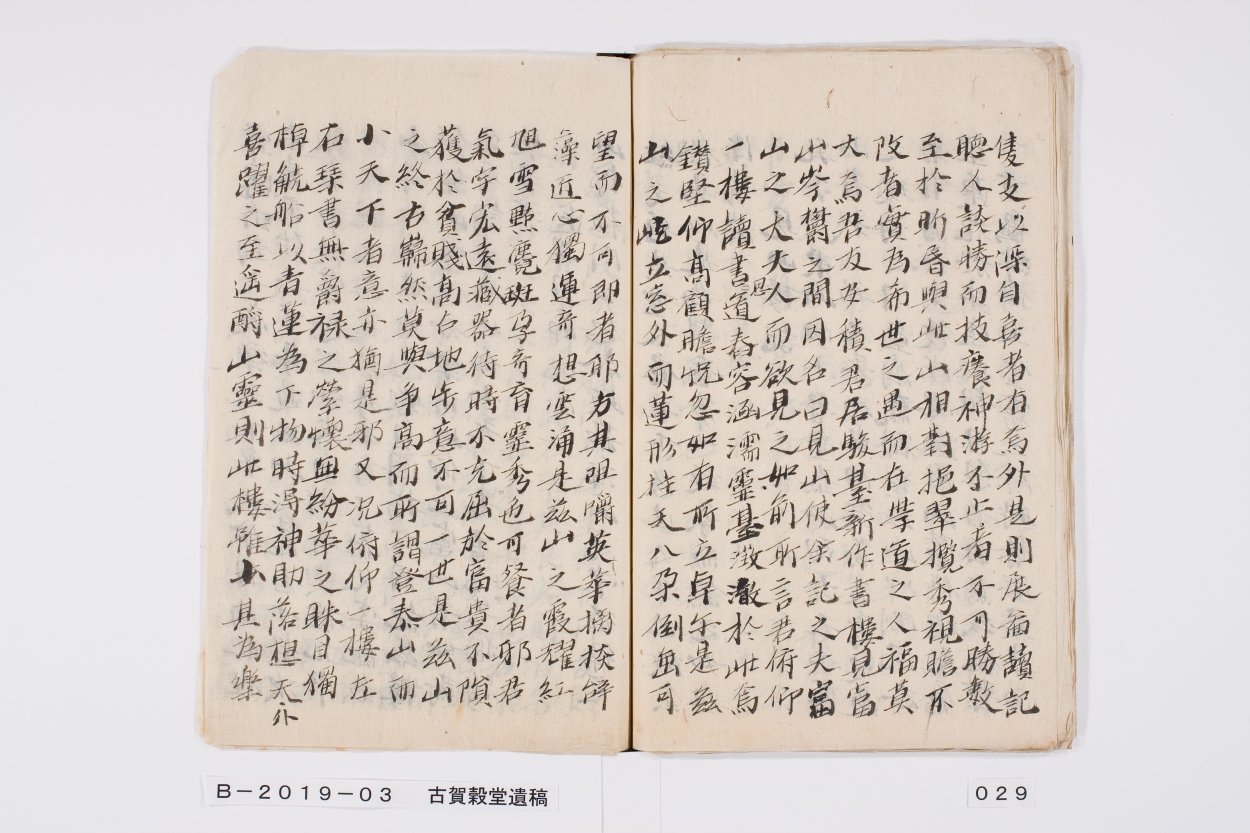 隻支以深自喜者有焉外是則展畄讀記
聴人談勝而技癢神游不止者不可勝数
至於昕昏與此山相對挹翠攬秀視瞻不
改者實為希世之遇而在学道之人福莫
大焉君友安積君居駿基新作書樓見富
山岑欝之間因名曰見山使余記之夫富
山之大夫人而欲見之如前所言君俯仰
一樓讀書道春容涵濡靈基澂澈於此焉
思
鑚堅仰高顧瞻怳忽如有所立卓乎是茲
山之屹立窓外而蓮形拄天八朶倒出可
望而不可即者耶方其咀嚼英華摛掞
藻近心獨運奇想雲涌是茲山之霞耀紅
旭雪點靉斑孕奇育靈秀色可餐者邪君
氣宇宏遠藏器待時不充屈於富貴不隕
獲於貧賤高占地步意不可一世是茲山
之終古巋然莫與争高而所謂登泰山而
小天下者意亦猶是邪又况俯仰一樓左
右琴書無爵禄之縈懐無紛華之眯目獨
棹觥船以青蓮為下物時淂神助落想天外
喜躍之至遥酹山靈則此樓雖小其為樂
B－２０１９－０３　古賀穀堂遺稿
０２９